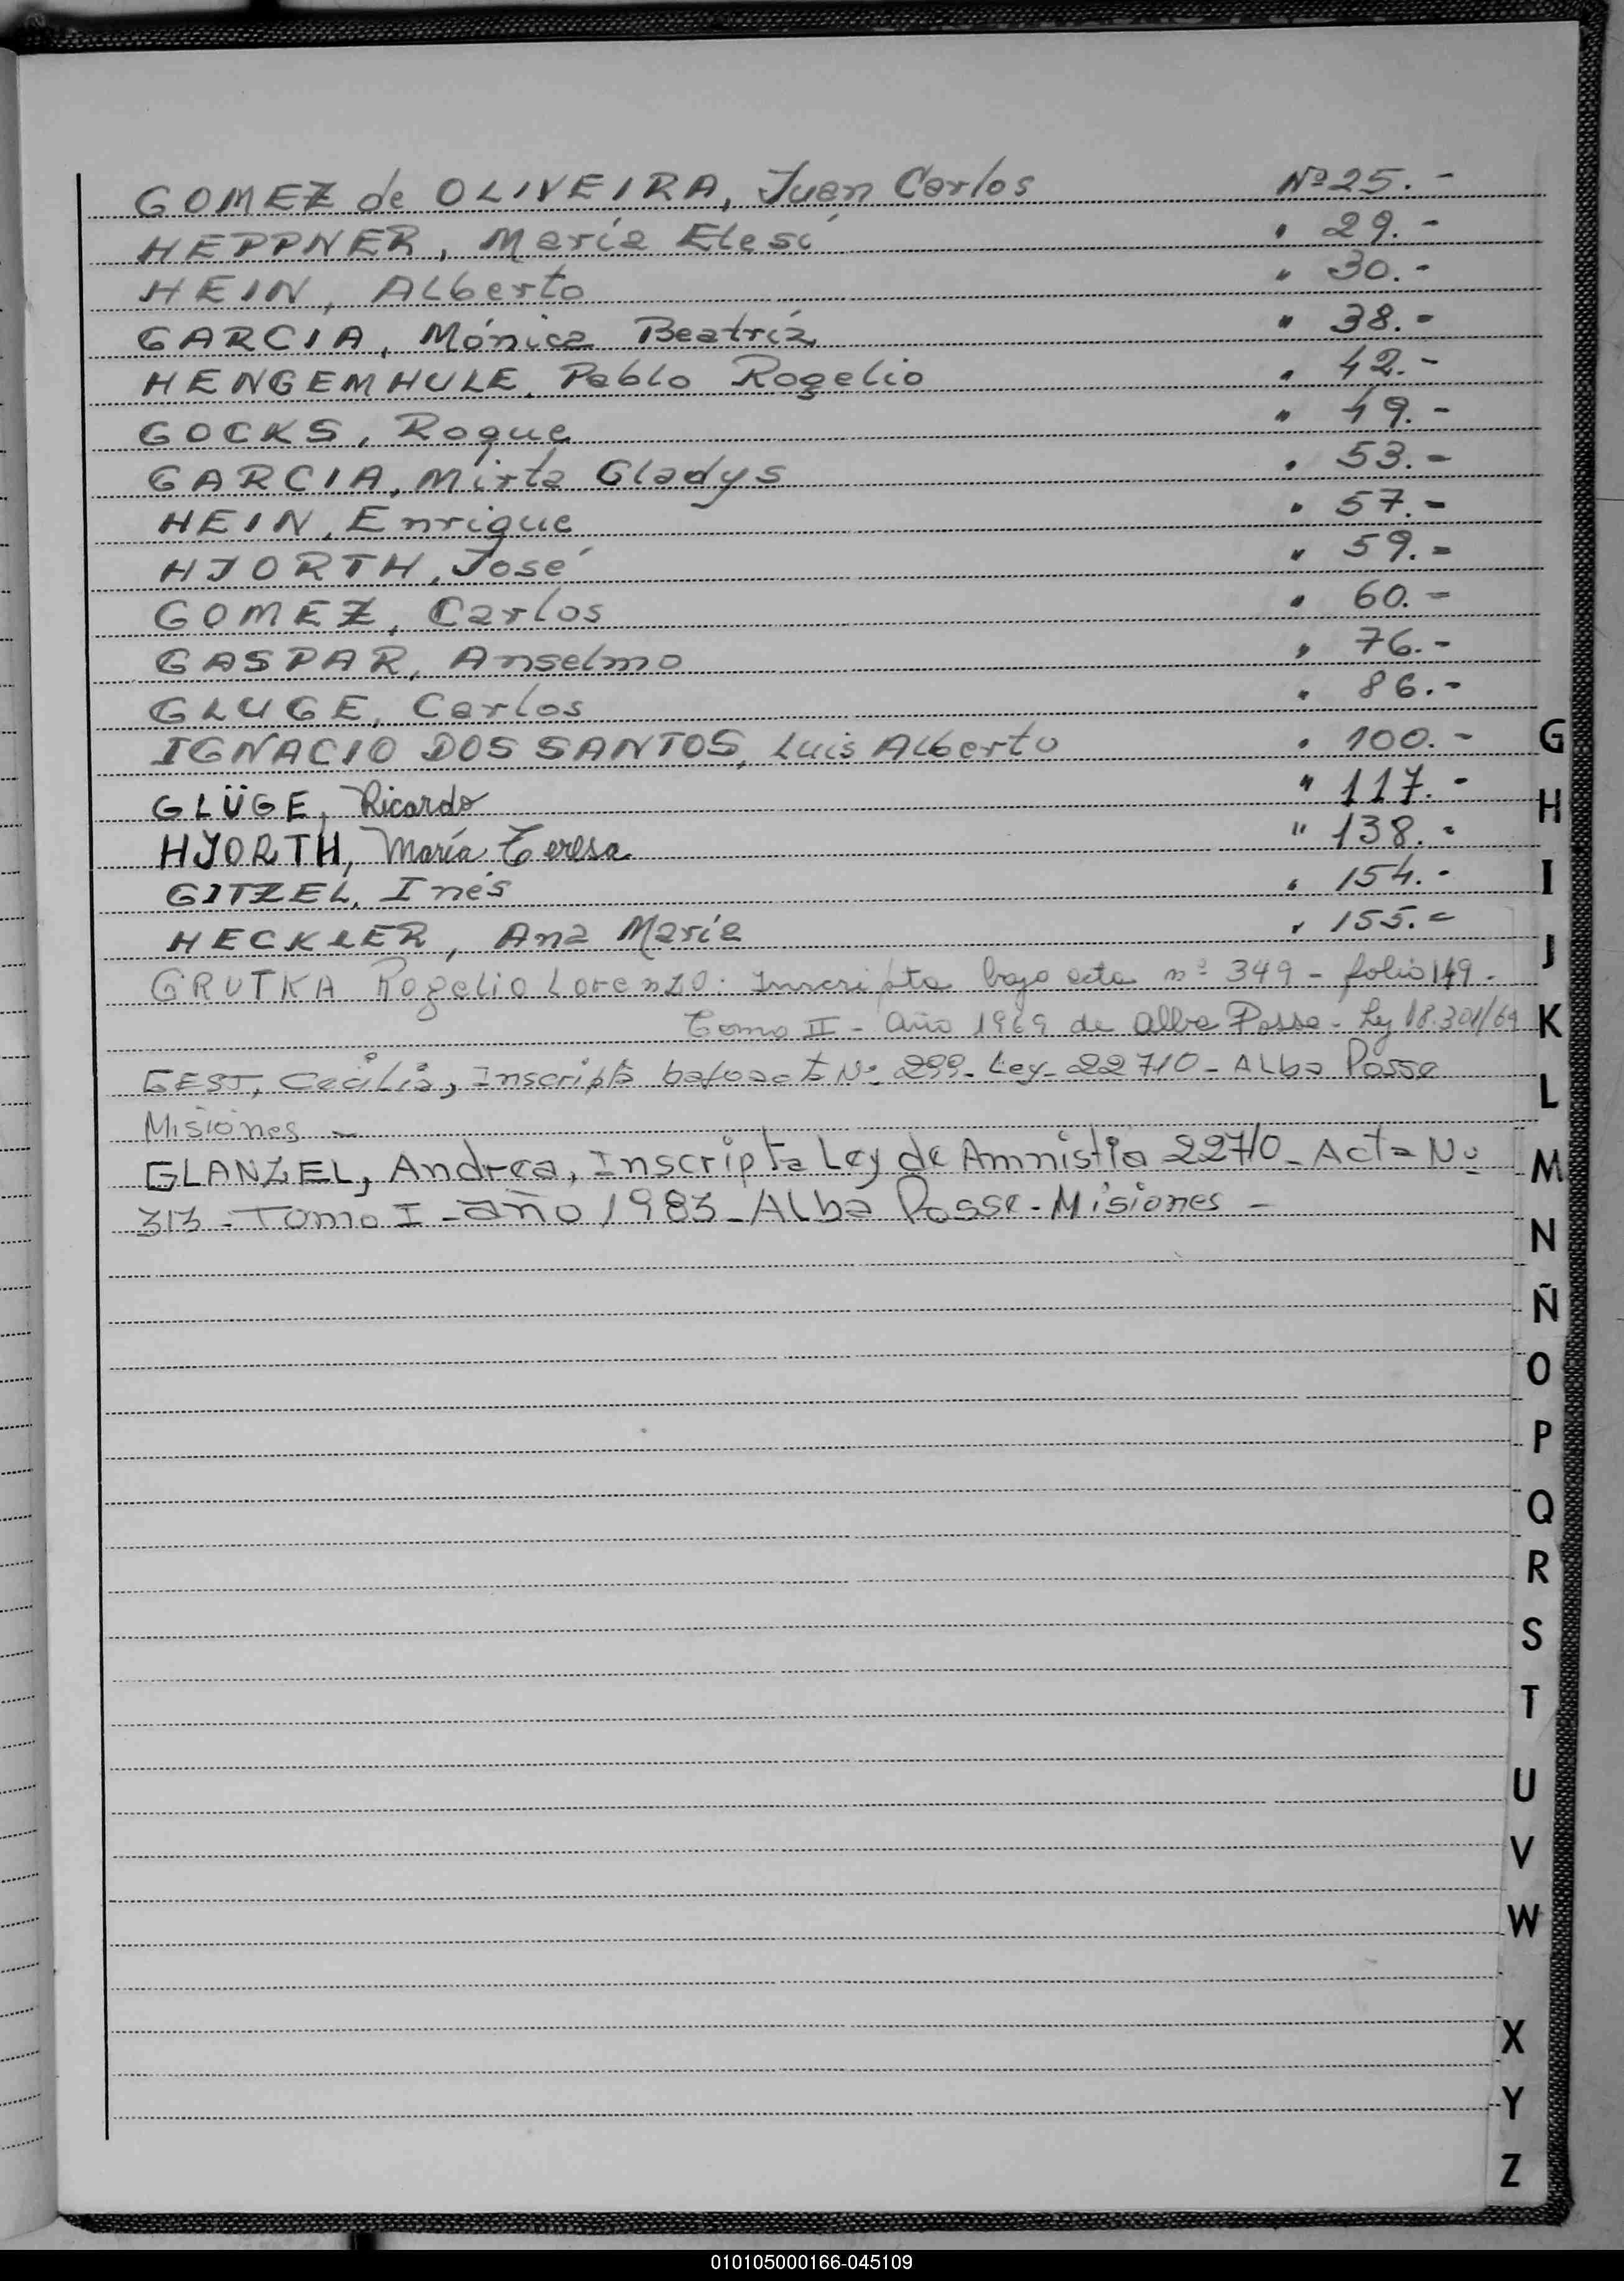 GOMEZ de OLIVEIRA, Juan Carlos Nº 25.-
HEPPNER, María Elesi " 29.-
HEIN, Alberto " 30.-
GARCIA, Mónica Beatríz " 38.-
HENGEMHULE, Pablo Rogelio " 42.-
GOCKS, Roque " 49.-
GARCIA, Mirta Gladys " 53.-
HEIN, Enrique " 57.-
HJORTH, José " 59.-
GOMEZ, Carlos " 60.-
GASPAR, Anselmo " 76.-
GLUGE, Carlos " 86.-
IGNACIO DOS SANTOS, Luis Alberto " 100.-
GLÜGE, Ricardo " 117.-
HJORTH, María Teresa " 138.-
GITZEL, Inés " 154.-
HECKLER, Ana María " 155.-
GRUTKA Rogelio Lorenzo: Inscripta bajo acta nº 349 - folio 149-
Tomo II - año 1969 de Alba Posse - Ley 18.301/69
GEST, Cecilia, Inscripta bajo acta Nº 299- Ley- 22710- Alba Posse
Misiones -
GLANZEL, Andrea, Inscripta Ley de Amnistia 22710- Acta Nº
313 - Tomo I - año 1983- Alba Posse - Misiones -
G
H
I
J
K
L
M
N
Ñ
O
P
Q
R
S
T
U
V
W
X
Y
Z
010105000166-045109